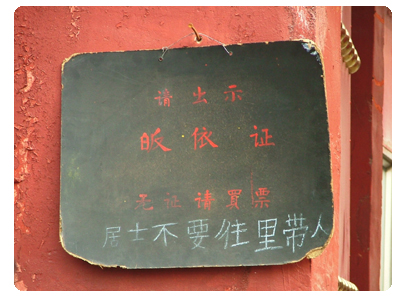 请出示
皈依证
无证请买票
居士不要往里带人